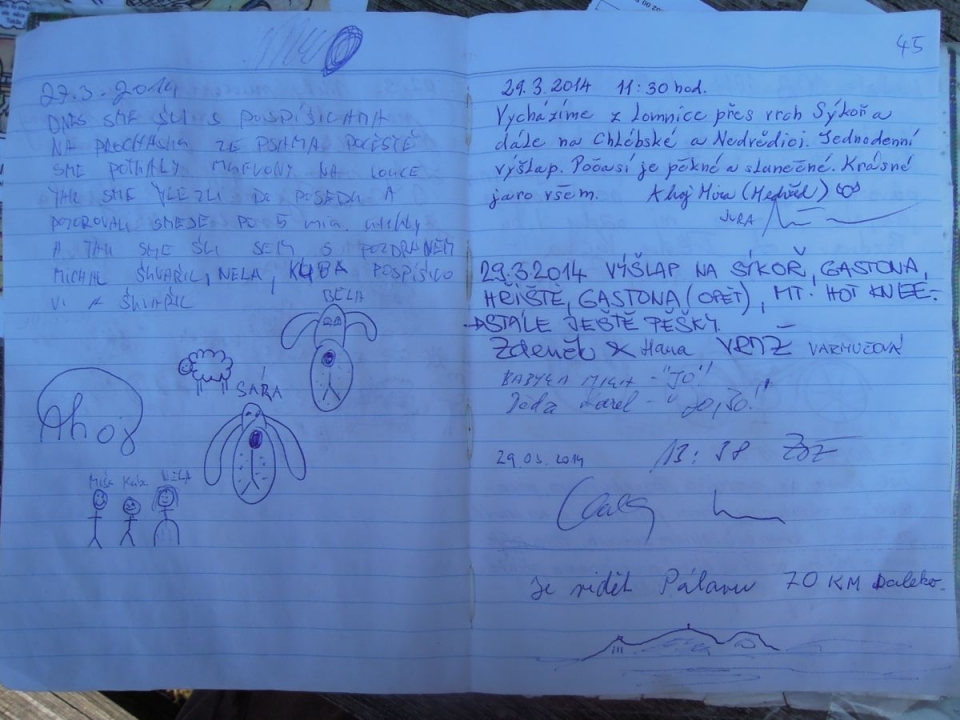 27.3.2014
DNES SME ŠLI S POSPÍŠILAMA
NA PROCHASKU ZE PSAMA POJEŠTĚ
SME POTKALY MUFLONY NA LOUCE
TAK SME VLEZLI DO POSEDU A
POZOROVALI SME JE PO 5 min.
A TAK SME ŠLI SEM S POZDRAVEM
MICHAL ŠKVAŘIL, NELA, KUBA POSPÍŠILO
VI A ŠKVAŘIL
BĚLA
SÁRA
Ahoj
Míša Kuba NELA
45
29.3.2014 11:30 hod.
Vycházíme z Lomnice přes vrch Sýkoř a
dále na Chlébské a Nedvědici. Jednodenní
výšlap. Počasí je pěkné a slunečné. Krásné
jaro všem. Ahoj Míra (Medvěd)
JURA
29.3.2014 VÝŠLAP NA SÍKOŘ, GASTONA,
HŘIŠTĚ, GASTONA (OPĚT), MT. HOT KNEE.
→STÁLE JEŠTĚ PĚŠKY.
Zdeněk & Hana VRTŽ VARMUŽOVÁ
Děda Karel - "Jo, Jo!"
29.03.2014 13:38
Je vidět Pálavu 70 KM Daleko.